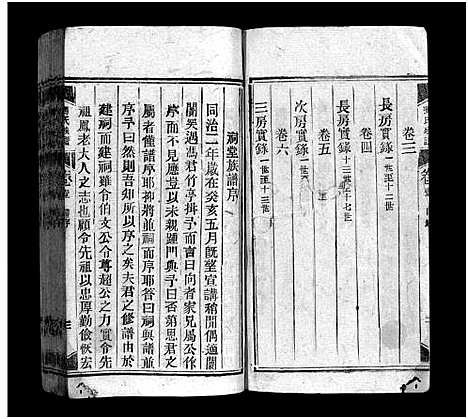 卷三
長房實錄一世至十二世
卷四
長房實錄十三世至十七世
卷五
次房實錄一世至十二世
卷六
三房實錄一世至十三世
祠堂族譜序
同治二年歲在癸亥五月既望宣講稍閒偶適闤
闠吳遇馮君竹亭揖予而言曰有者家兄屬公作
序而不見應豈以未親踵門與予曰否第思君之
屬者僅譜序耶抑將並祠而序耶答曰祠與譜並
序予曰然則吾知所以序之矣夫君之修譜由於
建祠而建祠雖令伯文尊超公之力實令先
祖鳳老大人之志也顧令先祖以忠厚勤儉恢宏